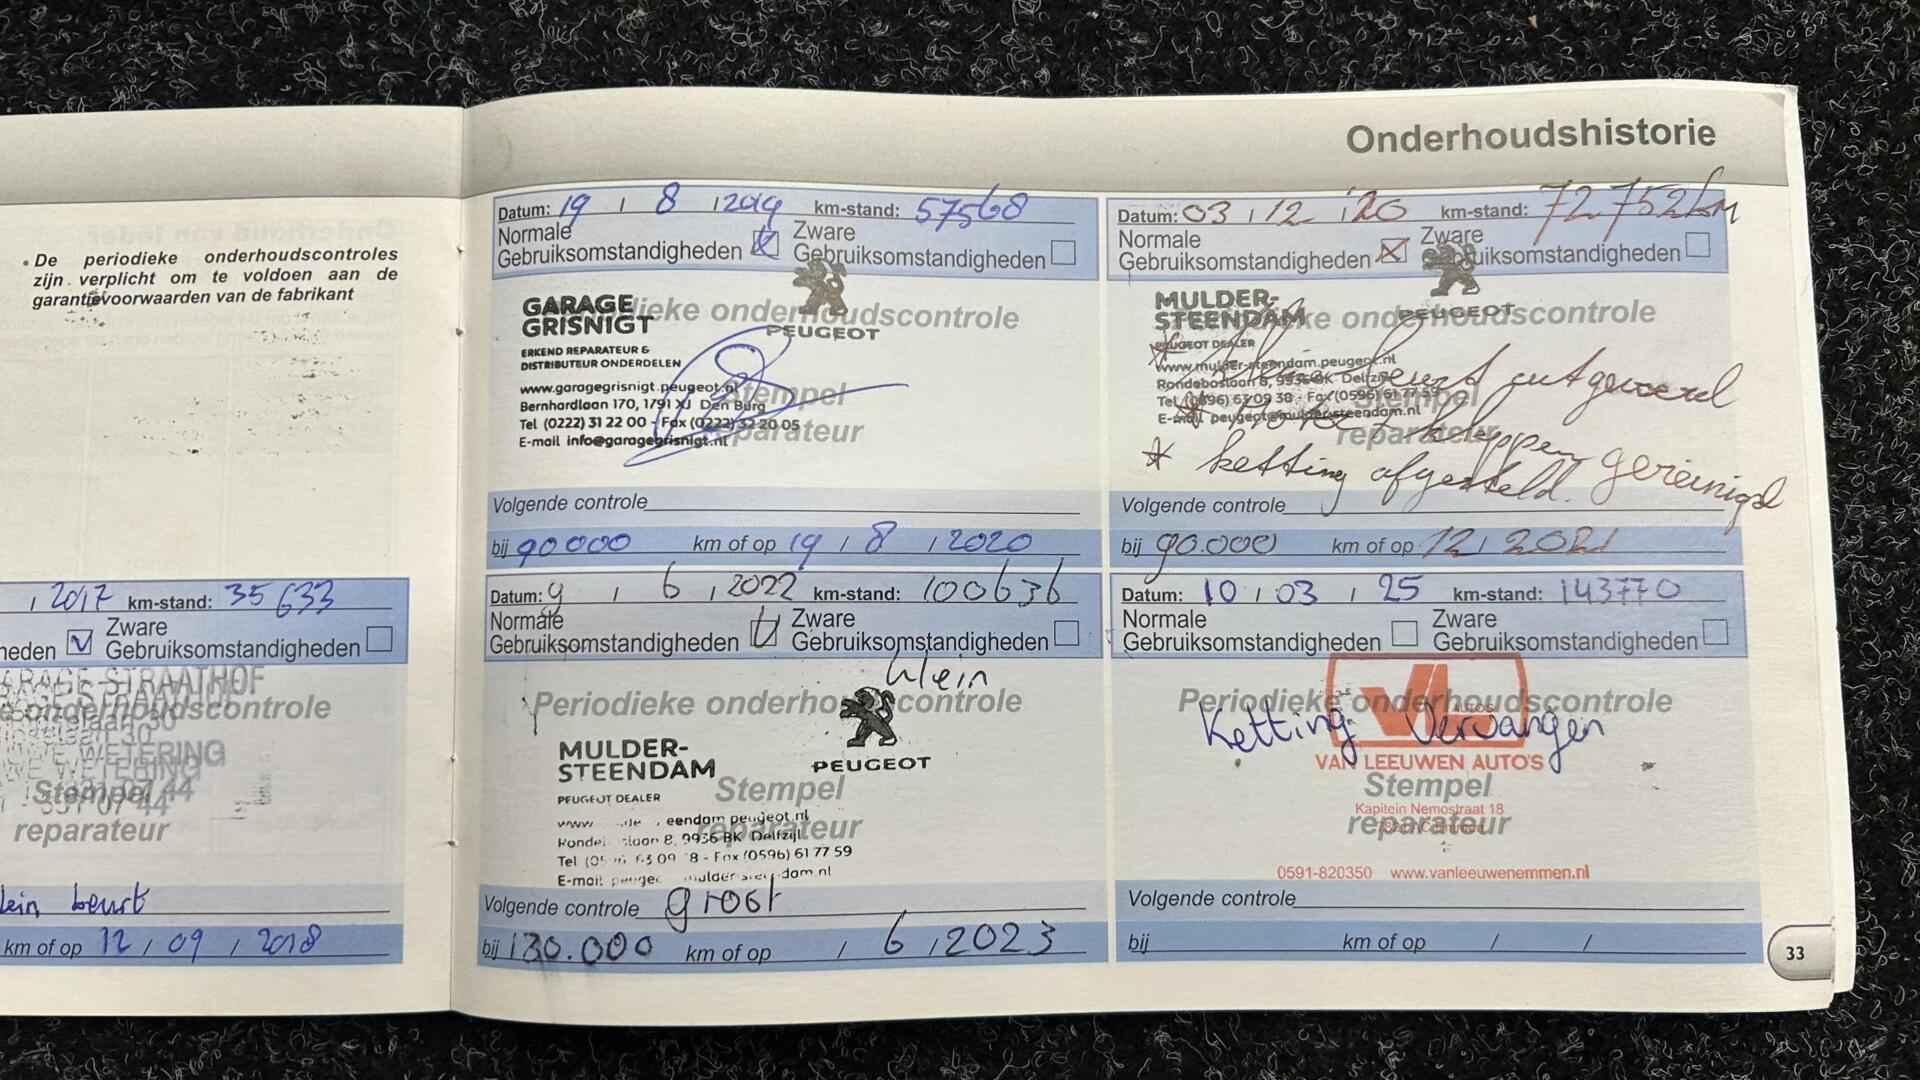 Onderhoudshistorie
• De periodieke onderhoudscontroles
zijn verplicht om te voldoen aan de
garantievoorwaarden van de fabrikant
/ 2017 km-stand: 35633
heden Zware
Gebruiksomstandigheden
STRAATHOF
onderhoudscontrole
WETERING
Stempel
reparateur
lein beurt
km of op 12 / 09 / 2018
Datum: 19 / 8 / 2019 km-stand: 57568
Normale
Gebruiksomstandigheden
Zware
Gebruiksomstandigheden
GARAGE
GRISNIGT
PEUGEOT
Periodieke onderhoudscontrole
ERKEND REPARATEUR &
DISTRIBUTEUR ONDERDELEN
www.garagegrisnigt.peugeot.nl
Stempel
Bernhardlaan 170, 1791 XJ Den Burg
Tel (0222) 31 22 00 - Fax (0222) 32 20 05
reparateur
E-mail info@garagegrisnigt.nl
Volgende controle
bij 90000 km of op 19 / 8 / 2020
Datum: 03 / 12 '20 km-stand: 72.752km
Normale
Gebruiksomstandigheden
Zware
Gebruiksomstandigheden
MULDER-
STEENDAM
PEUGEOT
onderhoudscontrole
PEUGEOT DEALER
www.mulder-steendam.peugeot.nl
beurt uitgevoerd
Rondeboslaan 8, 9936 BK Delfzijl
Tel (0596) 63 09 38 - Fax (0596) 61 77 59
Stempel
E-mail peugeot@mulder-steendam.nl
reparateur
* kleppen gereinigd
* ketting afgesteld.
Volgende controle
bij 90.000 km of op 12 / 2021
Datum: 9 / 6 / 2022 km-stand: 100636
Normale
Gebruiksomstandigheden
Zware
Gebruiksomstandigheden
klein
Periodieke onderhoudscontrole
MULDER-
STEENDAM
PEUGEOT
PEUGEOT DEALER
Stempel
www eendam peugeot.nl
reparateur
laan 8, 9936 BK Delfzijl
Tel 63 09 8 - Fax (0596) 61 77 59
E-mail
Volgende controle groot
bij 130.000 km of op / 6 / 2023
Datum: 10 / 03 / 25 km-stand: 143770
Normale
Gebruiksomstandigheden
Zware
Gebruiksomstandigheden
Periodieke onderhoudscontrole
AUTOS
Ketting Vervangen
VAN LEEUWEN AUTO'S
Stempel
Kapitein Nemostraat 18
reparateur
0591-820350 www.vanleeuwenemmen.nl
Volgende controle
bij km of op / /
33